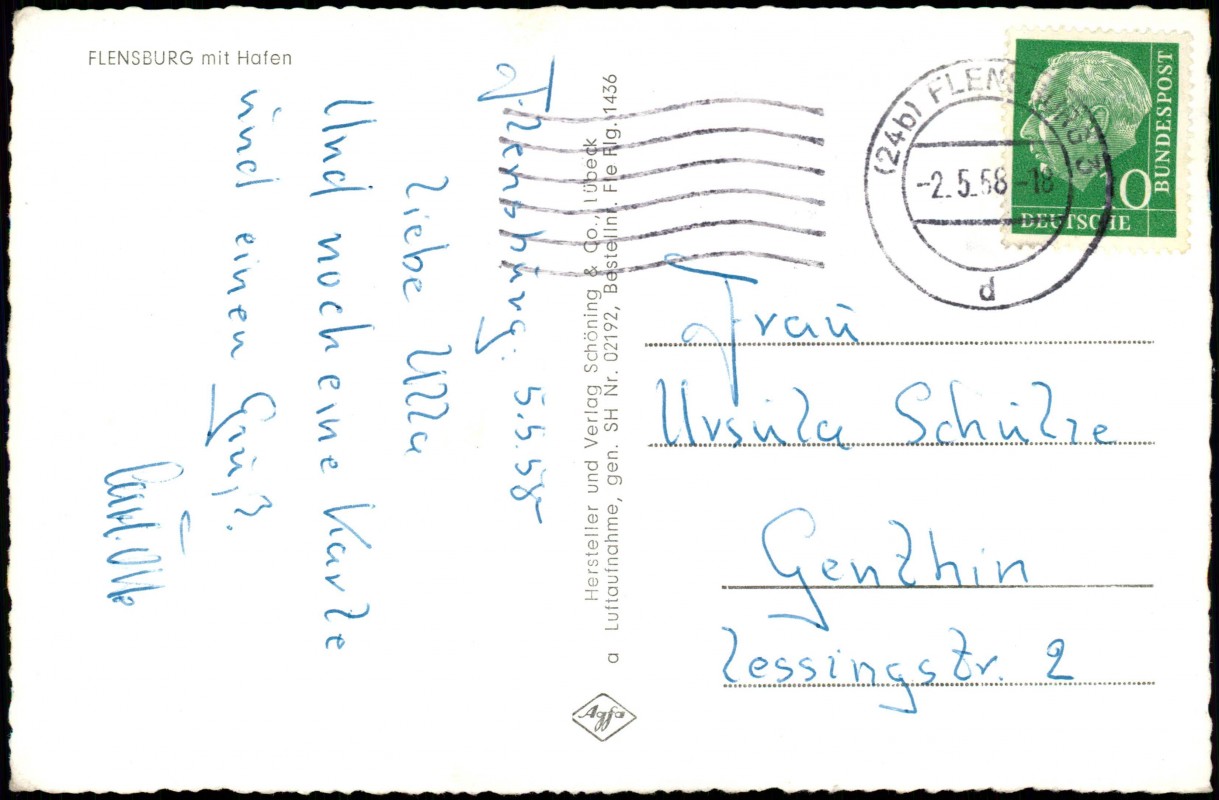 FLENSBURG mit Hafen
Flensburg. 5.5.58
Liebe Ulla
Und noch eine Karte
und einen Gruß.
Hersteller und Verlag Schöning & Co., Lübeck
a Luftaufnahme, gen. SH Nr. 02192, Bestellnr. Fle Flg. 1436
Agfa
(24b) FLENSBURG 3
-2.5.58-18
d
10
DEUTSCHE
BUNDESPOST
Frau
Ursula Schulze
Genthin
Lessingstr. 2